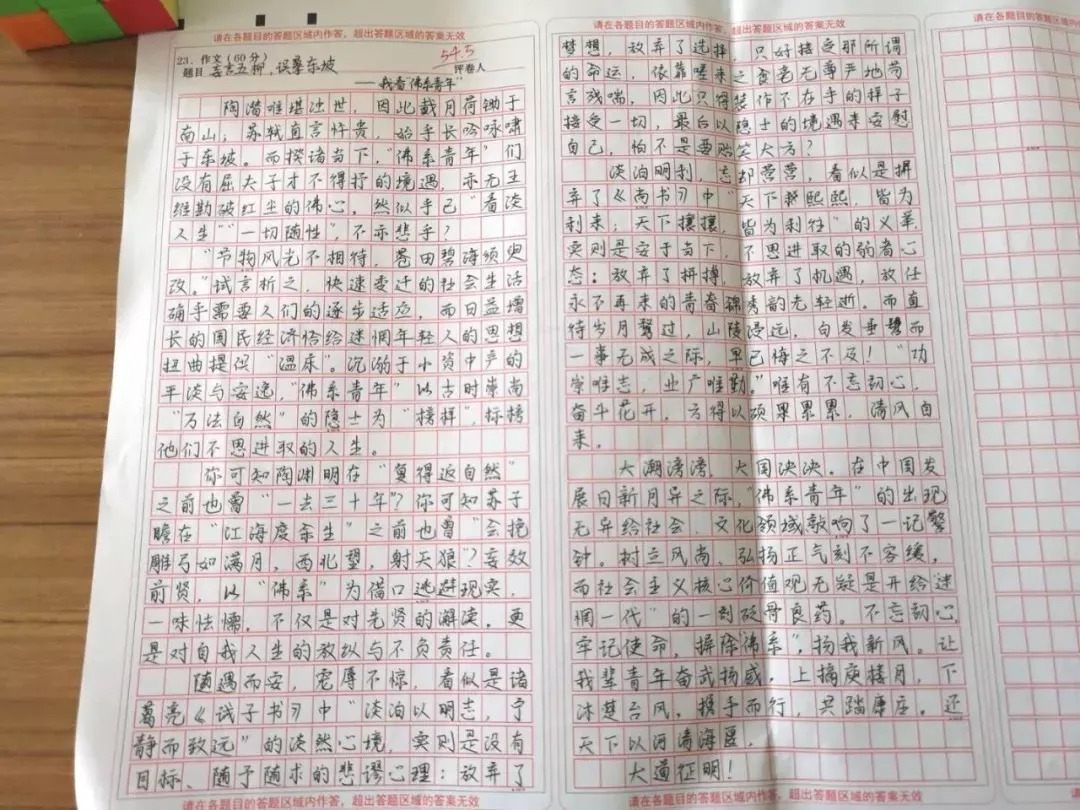 请在各题目的答题区域内作答，超出答题区域的答案无效
23. 作文（60分）
54.5
评卷人
题目 妄言五柳，误摹东坡
——我看“佛系青年”
陶潜难堪浊世，因此戴月荷锄于
南山；苏轼直言忤贵，始乎长吟咏啸
于东坡。而揆诸当下，“佛系青年”们
没有屈夫子才不得抒的境遇，亦无王
维勘破红尘的佛心，然似乎已“看淡
人生”“一切随性”，不亦悲乎？
“节物风光不相待，苍田碧海须臾
改。”试言析之，快速变迁的社会生活
确乎需要人们的逐步适应，而日益增
长的国民经济恰给迷惘年轻人的思想
扭曲提供“温床”。沉溺于小资中产的
平淡与安逸，“佛系青年”以古时崇尚
“万法自然”的隐士为“榜样”，标榜
他们不思进取的人生。
你可知陶渊明在“复得返自然”
之前也曾“一去三十年”？你可知苏子
瞻在“江海度余生”之前也曾“会挽
雕弓如满月，西北望，射天狼”？妄效
前贤，以“佛系”为借口逃避现实，
一味怯懦，不仅是对先贤的误读，更
是对自我人生的放纵与不负责任。
随遇而安，宠辱不惊，看似是诸
葛亮《诫子书》中“淡泊以明志，宁
静而致远”的淡然心境，实则是没有
目标、随予随求的悲谬心理：放弃了
请在各题目的答题区域内作答，超出答题区域的答案无效
请在各题目的答题区域内作答，超出答题区域的答案无效
梦想，放弃了选择，只好接受那所谓
的命运，依靠嗟来之食毫无尊严地苟
言残喘，因此只得装作不在乎的样子
接受一切，最后以隐士的境遇来安慰
自己，怕不是要贻笑大方？
淡泊明利，忘却营营，看似是摒
弃了《尚书》中“天下熙熙，皆为
利来，天下攘攘，皆为利往”的义举，
实则是安于当下，不思进取的弱者心
态：放弃了拼搏，放弃了机遇，放任
永不再来的青春锦秀韵光轻逝。而直
待岁月骛过，山陵浸远，白发垂鬓而
一事无成之际，早已悔之不及！“功
崇惟志，业广惟勤。”唯有不忘初心，
奋斗花开，方得以硕果累累，清风自
来。
大潮湾湾，大国泱泱。在中国发
展日新月异之际，“佛系青年”的出现
无异给社会、文化领域敲响了一记警
钟。树立风尚、弘扬正气刻不容缓，
而社会主义核心价值观无疑是开给迷
惘一代”的一剂砭骨良药。不忘初心，
牢记使命，摒除“佛系”，扬我新风。让
我辈青年奋武扬威，上摘庾楼月，下
沐楚台风，携手而行，共踏康庄。还
天下以河清海晏，
大道征明！
请在各题目的答题区域内作答，超出答题区域的答案无效
请在各题目的答